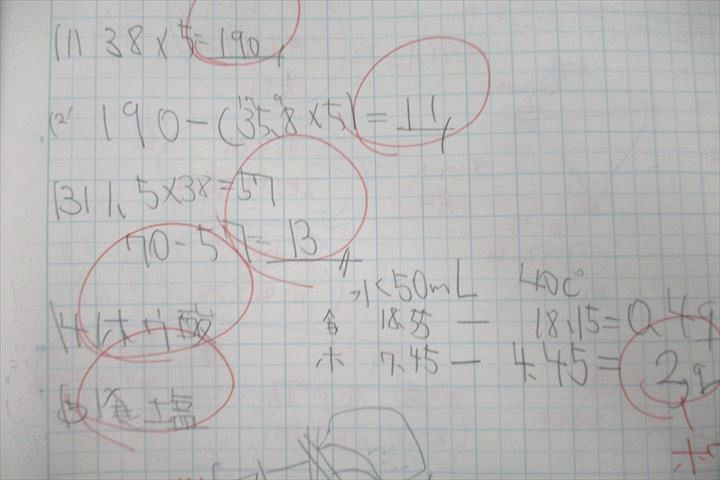 (1) 38×5=190
(2) 190-(35.8×5)=11
(3) 1.5×38=57
70-57=13
水50mL 40℃
(4) ホウ酸
食 18.55 - 18.15=0.4g
ホ 7.45 - 4.45=
(5) 食塩